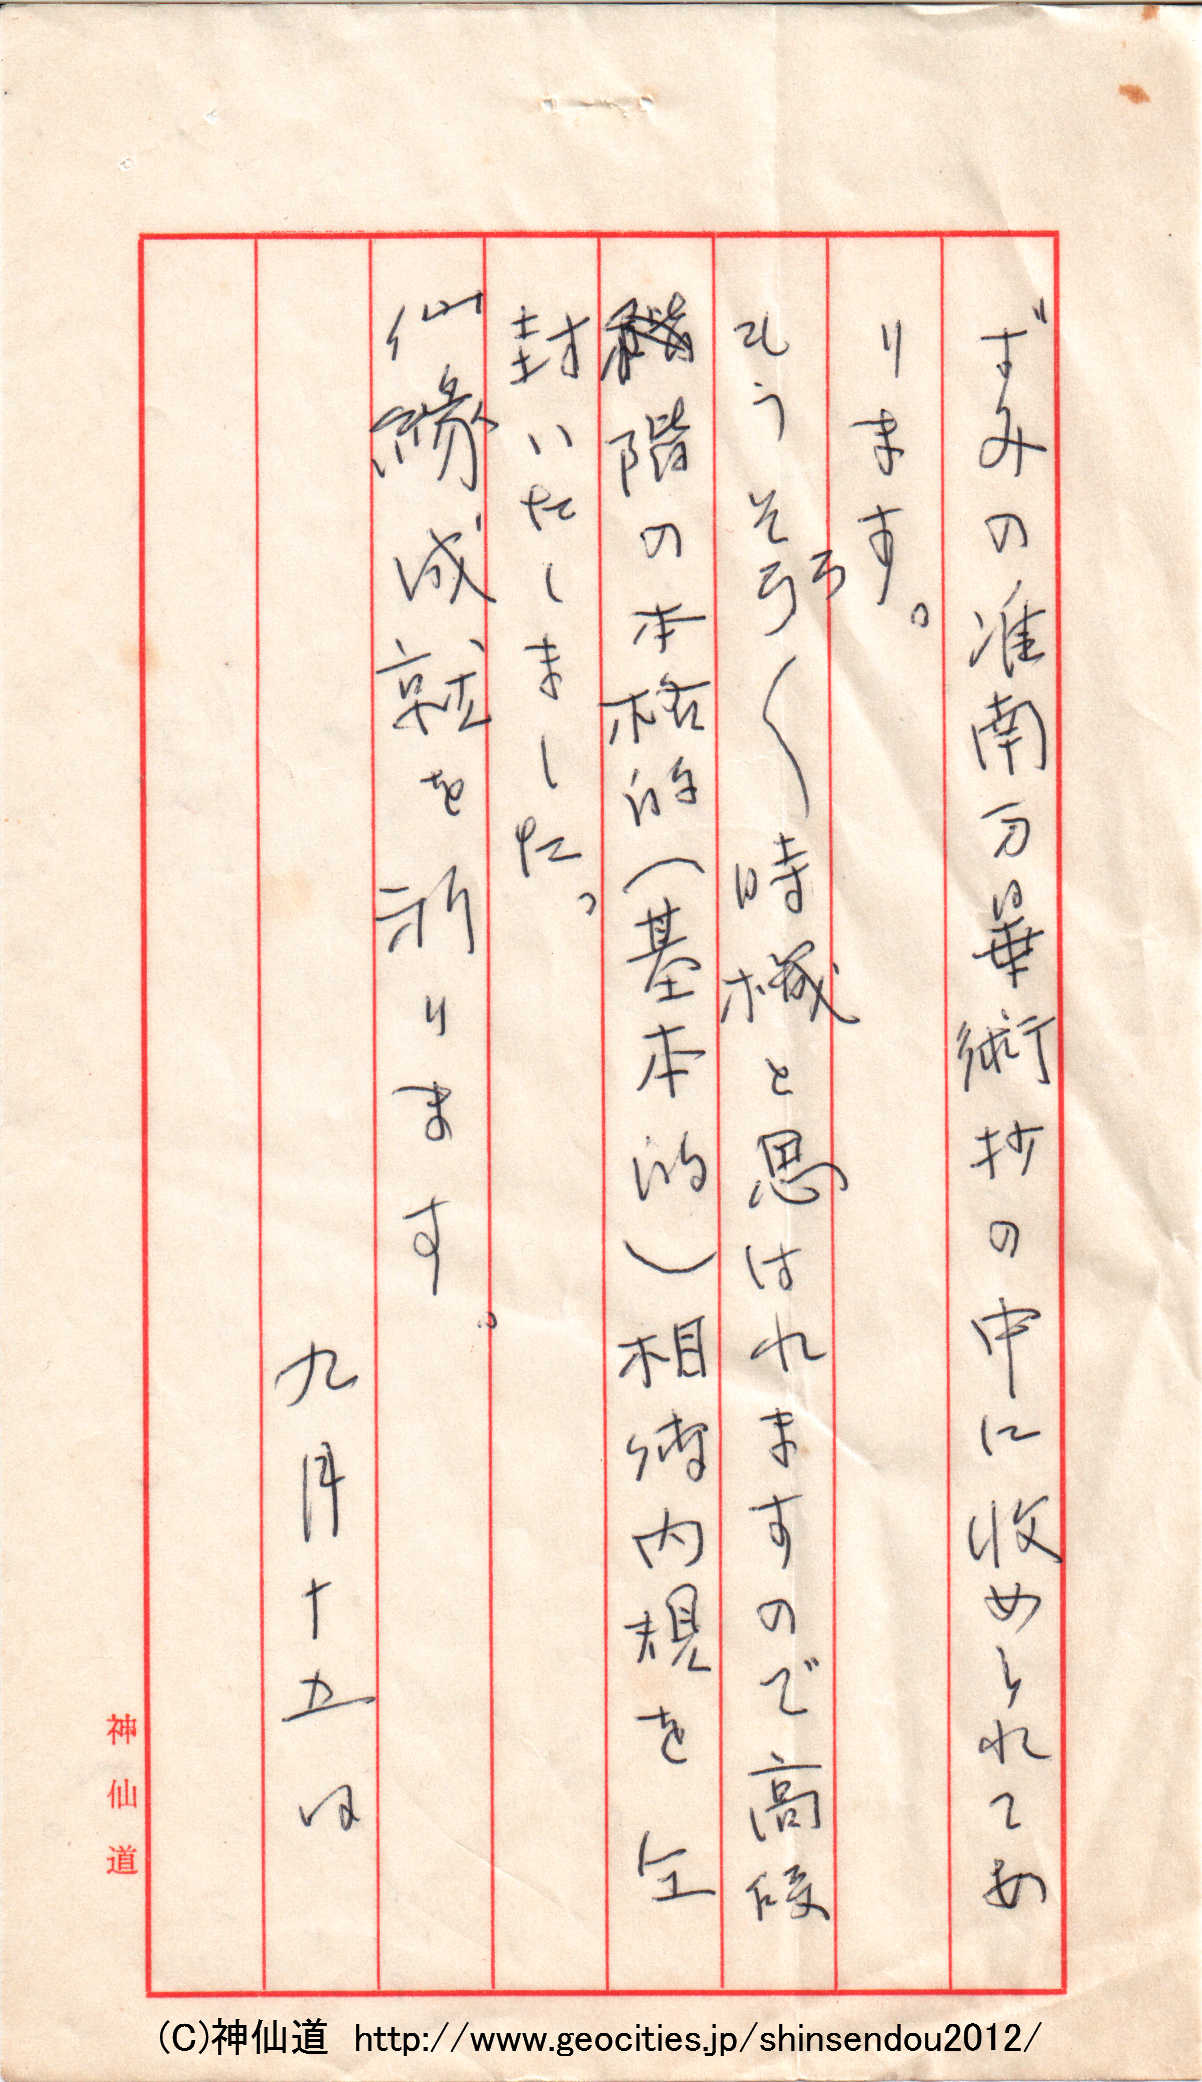 ずみの淮南万畢術抄の中に収められてあ
ります。
もうそろ〱時機と思はれますので高段
階の本格的（基本的）相傳内規を仝
封いたしました。
仙縁成就を祈ります。
九月十五日
神仙道
(C)神仙道 http://www.geocities.jp/shinsendou2012/